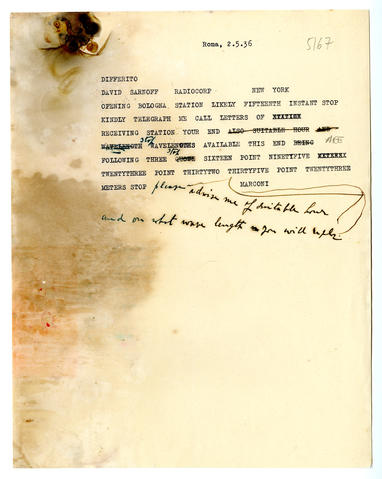 Roma, 2.5.36
5167
DIFFERITO
DAVID SARNOFF RADIOCORP NEW YORK
OPENING BOLOGNA STATION LIKELY FIFTEENTH INSTANT STOP
KINDLY TELEGRAPH ME CALL LETTERS OF
RECEIVING STATION YOUR END ALSO SUITABLE HOUR AND
WAVELENGTH WAVELENGTHS AVAILABLE THIS END BEING ARE
FOLLOWING THREE SIXTEEN POINT NINETYFIVE
TWENTYTHREE POINT THIRTYTWO THIRTYFIVE POINT TWENTYTHREE
METERS STOP MARCONI
please advise me of suitable hour
and on what wave length you will reply.